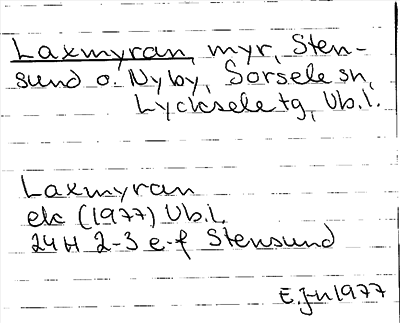 Laxmyran, myr, Sten-
sund o. Nyby, Sorsele sn,
Lycksele tg, Vb.l.
Laxmyran
ek (1977) Vb.l.
24H 2-3 e-f Stensund
1977